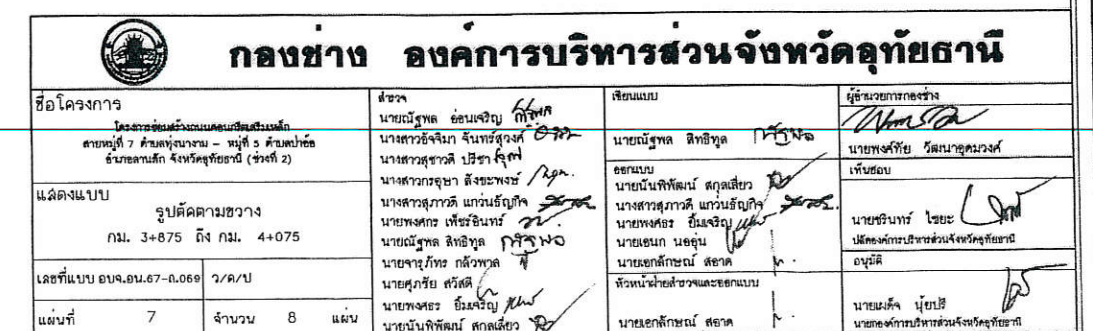 กองช่าง องค์การบริหารส่วนจังหวัดอุทัยธานี
ชื่อโครงการ
โครงการซ่อมสร้างถนนคอนกรีตเสริมเหล็ก
สายหมู่ที่ 7 ตำบลทุ่งนางาม - หมู่ที่ 5 ตำบลป่าอ้อ
อำเภอลานสัก จังหวัดอุทัยธานี (ช่วงที่ 2)
แสดงแบบ
รูปตัดตามขวาง
กม. 3+875 ถึง กม. 4+075
เลขที่แบบ อบจ.อน.67-ถ.069 ว/ด/ป
แผ่นที่ 7 จำนวน 8 แผ่น
สำรวจ
นายณัฐพล อ่อนเจริญ
นางสาวอัจจิมา จันทร์สุวงศ์
นางสาวสุชาวดี ปรีชา
นางสาวกรอุษา สังขะพงษ์
นางสาวสุภาวดี แก่นธัญกิจ
นายพงศกร เพ็ชรอินทร์
นายณัฐพล สิทธิทูล
นายจารุภัทร กลัวพาล
นายศุภชัย สวัสดี
นายพงศธร ยิ้มเจริญ
นายนันทิพัฒน์ สกุลเสี่ยว
เขียนแบบ
นายณัฐพล สิทธิทูล
ออกแบบ
นายนันทิพัฒน์ สกุลเสี่ยว
นางสาวสุภาวดี แก่นธัญกิจ
นายพงศธร ยิ้มเจริญ
นายเอนก นออุ่น
นายเอกลักษณ์ สอาด
หัวหน้าฝ่ายสำรวจและออกแบบ
นายเอกลักษณ์ สอาด
ผู้อำนวยการกองช่าง
นายพงศ์ทัย วัฒนาอุดมวงศ์
เห็นชอบ
นายชรินทร์ ไชยะ
ปลัดองค์การบริหารส่วนจังหวัดอุทัยธานี
อนุมัติ
นายเผด็จ นุ้ยปรี
นายกองค์การบริหารส่วนจังหวัดอุทัยธานี